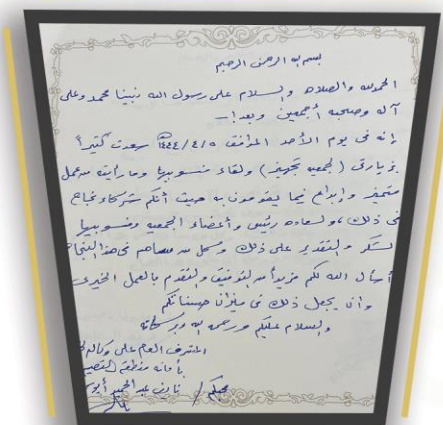 بسم الله الرحمن الرحيم
الحمدلله والصلاه والسلام على رسول الله نبينا محمد وعلى
آله وصحبه أجمعين وبعد :-
إنه في يوم الأحد الموافق ١٤٤٤/٤/٥هـ سعدت كثيراً
بزيارتي (لجمعيه تجهيز) ولقاء منسوبيها وما رأيته من عمل
متميز وإبداع فيما يقومون به حيث أنكم شركاء نجاح
في ذلك، ولسعاده رئيس وأعضاء الجمعيه ومنسوبيها
الشكر والتقدير على ذلك ولكل من ساهم في هذا النجاح
أسأل الله لكم مزيداً من التوفيق والتقدم بالعمل الخيري
وأن يجعل ذلك في ميزان حسناتكم
والسلام عليكم ورحمة الله وبركاته
المشرف العام على وكالة
بأمانه منطقة القصيم
محبكم / نايف عبدالحميد أبو